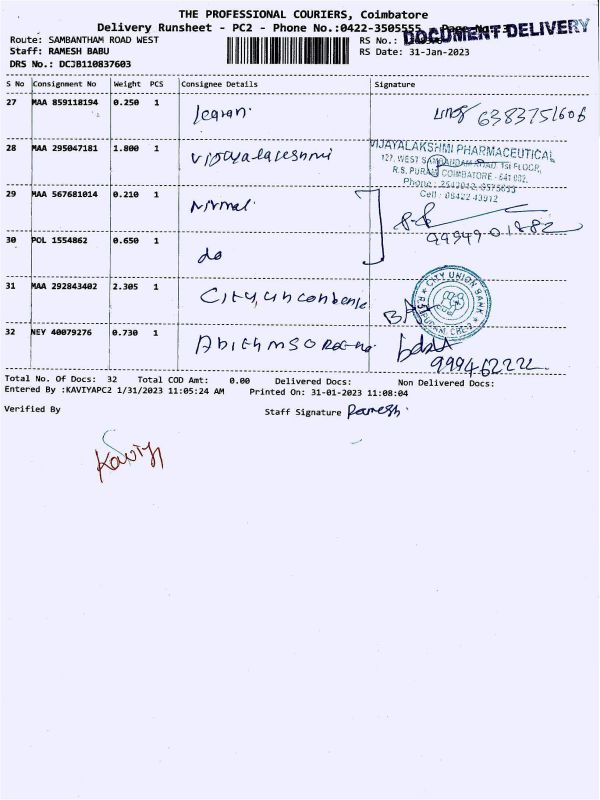 THE PROFESSIONAL COURIERS, Coimbatore
Delivery Runsheet - PC2 - Phone No.:0422-3505555 - Page No.: 3
DOCUMENT DELIVERY
Route: SAMBANTHAM ROAD WEST
RS No.:
Staff: RAMESH BABU
RS Date: 31-Jan-2023
DRS No.: DCJB110837603
S No Consignment No Weight PCS Consignee Details Signature
27 MAA 859118194 0.250 1
6383751606
28 MAA 295047181 1.800 1 vijayalakshmi
VIJAYALAKSHMI PHARMACEUTICAL
127, WEST SAMBANDAM ROAD, 1st FLOOR,
R.S. PURAM COIMBATORE - 641 002.
Phone : 2542042, 5575653
Cell : 98422 43912
29 MAA 567681014 0.210 1 Nirmal
30 POL 1554862 0.650 1 do
31 MAA 292843402 2.305 1 City
CITY UNION BANK
32 NEY 40079276 0.730 1
Total No. Of Docs: 32 Total COD Amt: 0.00 Delivered Docs: Non Delivered Docs:
Entered By :KAVIYAPC2 1/31/2023 11:05:24 AM Printed On: 31-01-2023 11:08:04
Verified By Staff Signature Ramesh
Kaviya